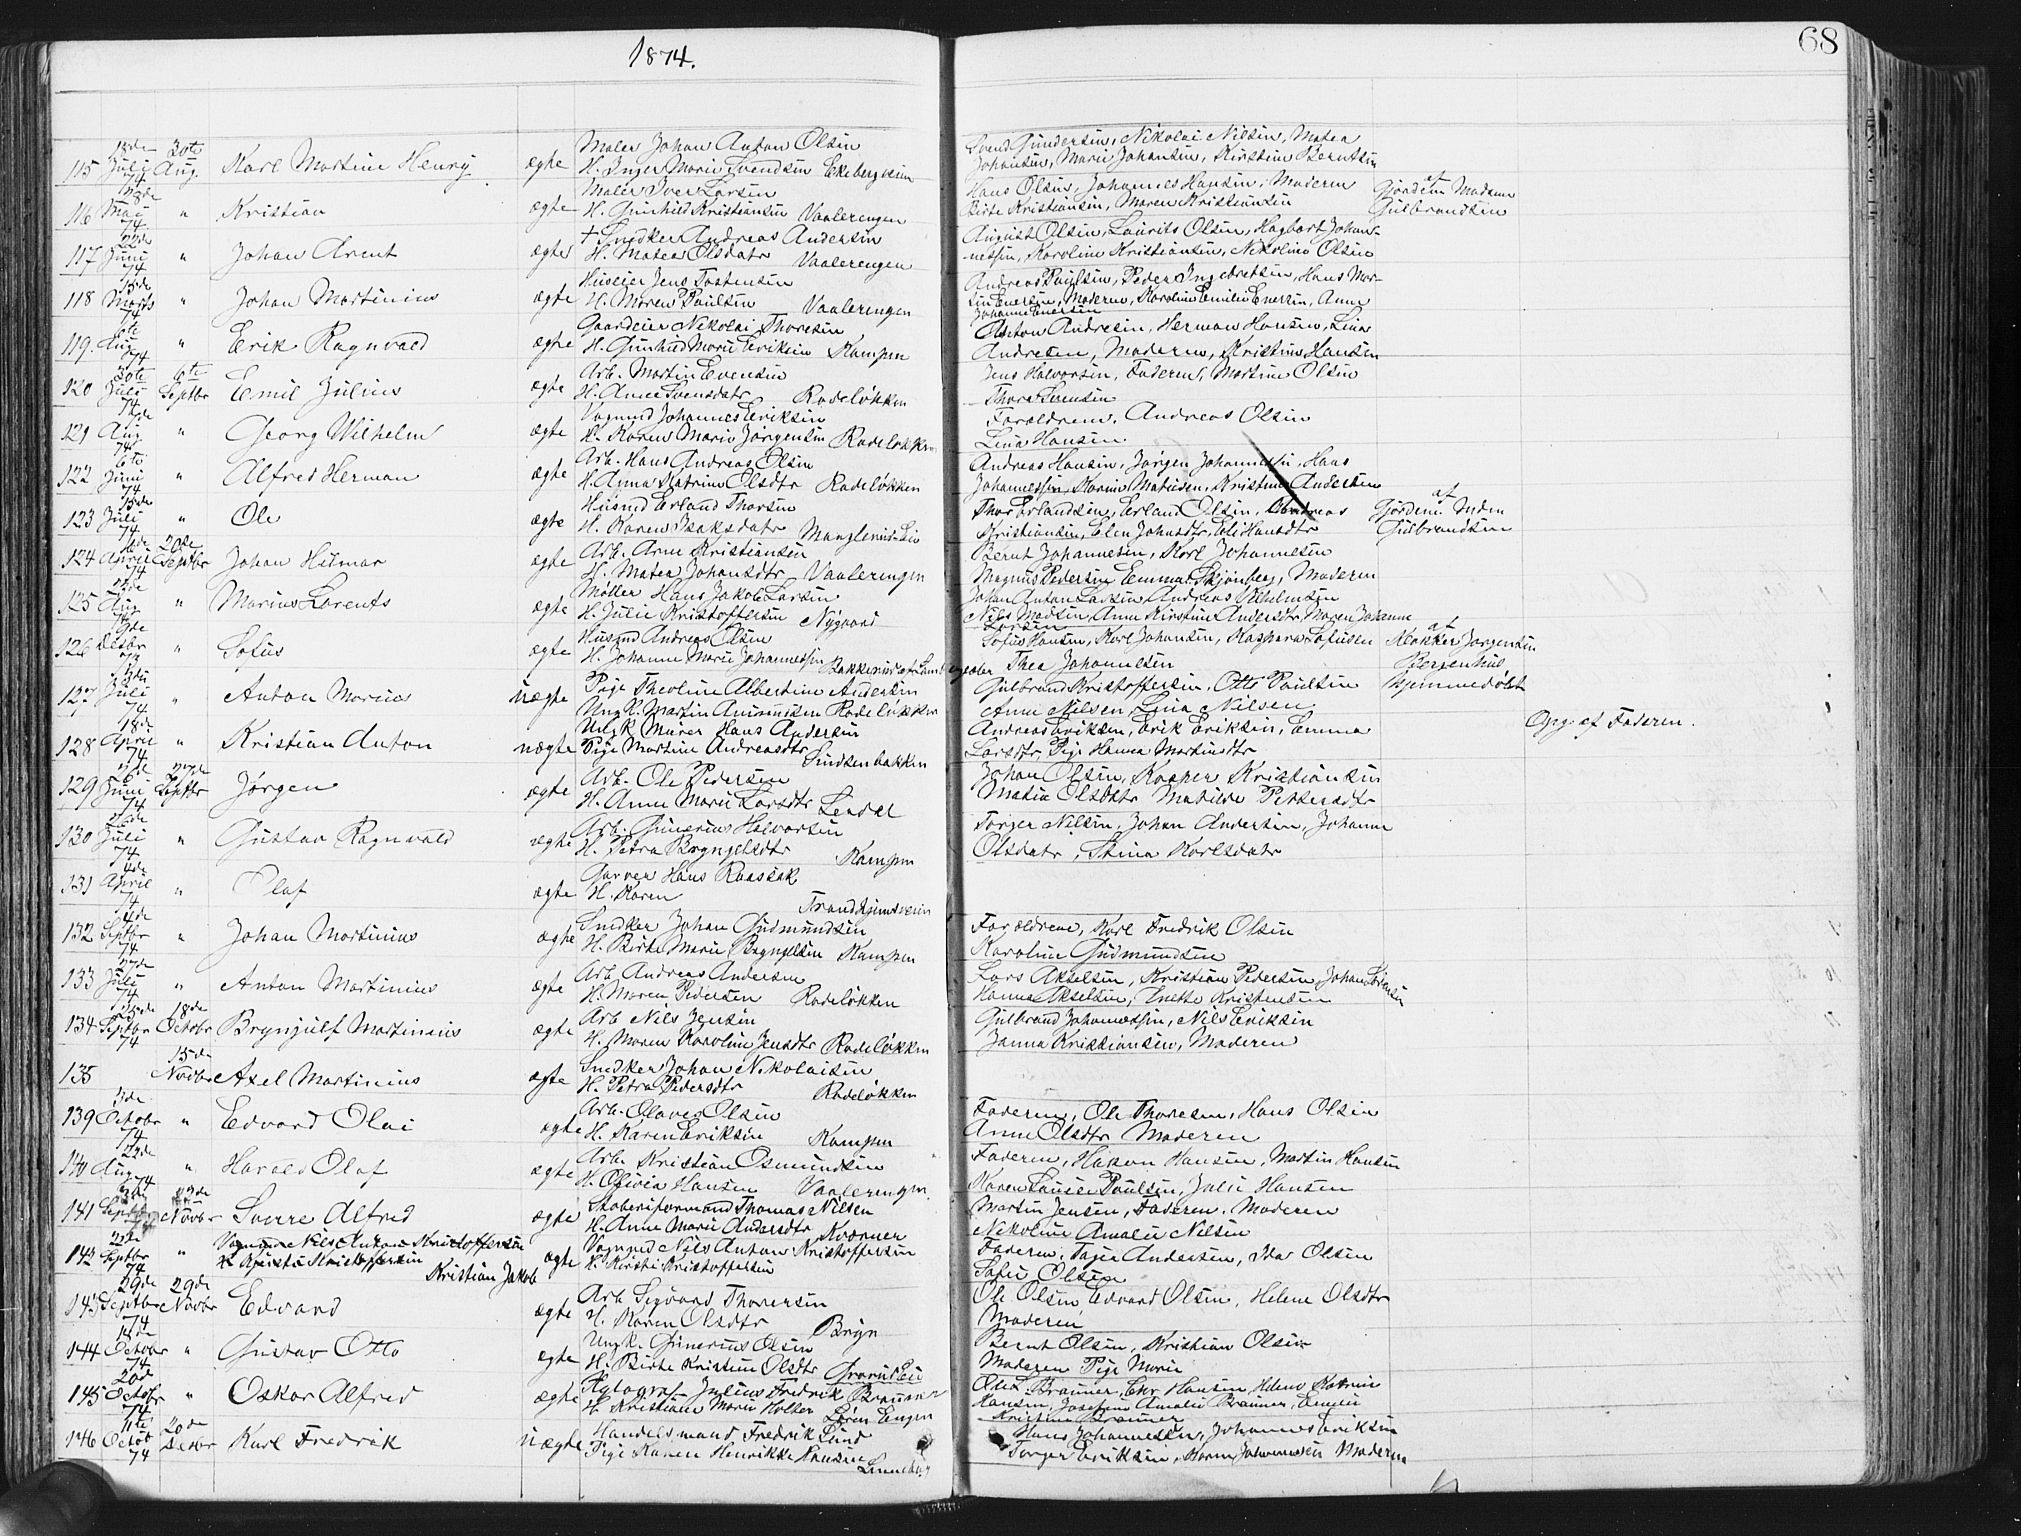 1874.
68
115 13de Juli 74 30te Aug. Karl Martin Henry ægte Maler Johan Anton Olsen
H. Inger Marie Svendsen Ekebergveien
Svend Gundersen, Nikolai Nilsen, Matea
Johansen, Marie Johansen, Kirstine Berntsen
116 28de Mai 74 " Kristian ægte Maler Iver Larsen
H. Gunhild Kristiansen Vaalerengen
Hans Olsen, Johannes Hansen, Moderen
Birte Kristiansen, Maren Kristiansen
Gjordem af Madam
Gulbrandsen
117 22de Juni 74 " Johan Arent ægte + Snedker Andreas Andersen
H. Matea Olsdatr Vaalerengen
August Olsen, Laurits Olsen, Hagbart Johan-
nessen, Karoline Kristiansen, Nikoline Olsen
118 13de Marts 74 " Johan Martinius ægte Huseier Jens Tostensen
H. Maren Paulsen Vaalerengen
Andreas Paulsen, Peder Ingebretsen, Hans Mar-
tin Enersen, Moderen, Karoline Emilie Enersen, Anne
Johanne Enersen
119. 6te Aug 74 " Erik Ragnvald ægte Gaardeier Nikolai Thoresen
H. Gunhild Marie Eriksen Kampen
Anton Andresen, Herman Hansen, Lina
Andresen, Moderen, Kristine Hansen
120 30te Juli 74 6te Septbr Emil Julius ægte Arb. Martin Evensen
H. Anne Svensdatr Rodeløkken
Jens Halvorsen, Faderen, Martine Olsen
Thora Sørensen
121 12de Aug 74 " Georg Wilhelm ægte Vognmd Johannes Eriksen
H. Karen Marie Jørgensen Rodeløkken
Forældrene, Andreas Olsen
Lina Hansen.
122 6te Juni 74 " Alfred Herman ægte Arb. Hans Andreas Olsen
H. Anna Katrine Olsdtr Rodeløkken
Andreas Hansen, Jørgen Johannessen, Hans
Johannessen, Karine Matisen, Kristine Andersen
123 13de Juli 74 " Ole ægte Husmd Erland Thorsen
H. Karen Isaksdatr Manglerud-Eie
Thor Erlandsen, Erland Olsen, Andreas
Kristiansen, Elen Johnsdtr, Eli Hansdtr
Gjordem. af Inden
Gulbrandsen
124 16de April 74 20de Septbr Johan Hilmar ægte Arb. Arne Kristiansen
H. Matea Johansdtr Vaalerengen
Bernt Johannesen, Karl Johannesen
Magnus Pedersen Emma Skjønberg, Moderen
125 22de Aug 74 " Marius Lorents ægte Møller Hans Jakob Larsen
H. Julie Kristoffersen Nygaard
Johan Anton Larsen, Andreas Vilhelmsen
Nils Madsen, Anne Kirstine Andersdtr, Maren Johanne
Larsen
126 19de Desbr 73 " Sofus ægte Husmd Andreas Olsen
H. Johanne Marie Johannessen Bakkerud
Sofus Hansen, Karl Johansen, Kaspara Sofusen
Thea Johannesen
Klokker af Jørgensen
hjemmedøbt
127 13de Juli 74 " Anton Marius uægte Pige Theoline Albertine Andersen
Ungk. Martin Amundsen Rodeløkken
Gulbrand Kristoffersen, Otto Paulsen
Anne Nilsen, Lina Nilsen
128 18de April 74 " Kristian Anton uægte Ungk Murer Hans Andersen
Pige Martine Andreasdtr Smedsenbakken
Andreas Eriksen, Erik Eriksen, Emma
Larsdtr, Pige Hanna Martinsdtr
Opg. af Faderen.
129 Juni 74 27de Septbr Jørgen ægte Arb. Ole Pedersen
H. Anne Marie Larsdtr Lerdal
Johan Olsen, Kasper Kristiansen
Matia Olsdatr Matilde Pettersdtr
130 26de Juli 74 " Gustav Ragnvald ægte Arb. Gunerius Halvorsen
H. Petra Bryngelsdtr Kampen
Torger Nilsen, Johan Andersen, Johanne
Olsdatr, Stina Karlsdatr
131 4de April 74 " Olaf ægte Garver Hans Raastak
H. Karen Trondhjemsveien
132 4de Septbr 74 " Johan Martinius ægte Snedker Johan Gudmundsen
H. Birte Marie Bryngelsen Kampen
Forældrene, Karl Fredrik Olsen
Karoline Gudmundsen
133 27de Juli 74 " Anton Martinius ægte Arb Andreas Andersen
H. Maren Pedersen Rodeløkken
Lars Akselsen, Kristian Pedersen, Johan Sørensen
Hanna Akselsen, Anette Kristensen
134 Septbr 74 18de Octobr Brynjulf Martinius ægte Arb Nils Jensen
H. Maren Karoline Jensdtr Rodeløkken
Gulbrand Johannessen, Nils Eriksen
Janna Kristiansen, Moderen
135 15de Novbr Axel Martinius ægte Snedker Johan Nikolaisen
H. Petra Pedersdtr Rodeløkken
139 13de Octobr 74 " Edvard Olai ægte Arb. Olaves Olsen
H. Karen Eriksen Kampen
Faderen, Ole Thoresen, Hans Olsen
Anne Olsdtr Moderen
140 22de Aug 74 " Harald Olaf ægte Arb. Kristian Osmundsen
H. Olivia Hansen Vaalerengen.
Faderen, Hakon Hansen, Martin Hansen
Karen Louise Paulsen, Julie Hansen
141 Septbr 74 22de Novbr Sverre Alfred ægte Støberiformand Thomas Nilsen
H. Anne Marie Andersdtr Kværner
Martin Jensen, Faderen, Moderen
Nikoline Amalie Nilsen
142 22de Septbr 74 " Vognmd Nils Anton Kristoffersen
H. Kjersti Kristoffersen
Kristian Jakob ægte Vognmd Nils Anton Kristoffersen
H. Kirsti Kristoffersen
Faderen, Tajer Andersen, Ole Olsen
Sofie Olsen
143 29de Septbr 74 29de Novbr Edvard ægte Arb Sigvard Thoversen
H. Karen Olsdtr Bryn
Ole Olsen, Edvard Olsen, Helene Olsdtr
Moderen
144 18de Octobr 74 " Gustav Otto ægte Ungk. Gunerius Olsen
H. Birte Kristine Olsdtr Grorud Eie
Bernt Olsen, Kristian Olsen
Moderen Pige Marie
145 20de Octobr 74 " Oskar Alfred ægte Xylograf Julius Fredrik Brauner
H. Kristiane Marie Holter Søren Engen
Olaf Brauner, Chr Hansen, Helene Katrine
Hansen, Josefine Amalie Brauner, Emilie
Kristine Brauner
146 11te Octob 74 20de Desbr Karl Fredrik uægte Handelsmand Fredrik Lund
Pige Karen Henrikke Hansen
Hans Johannessen, Johannes Eriksen
Torger Eriksen, Karen Johannessen Moderen